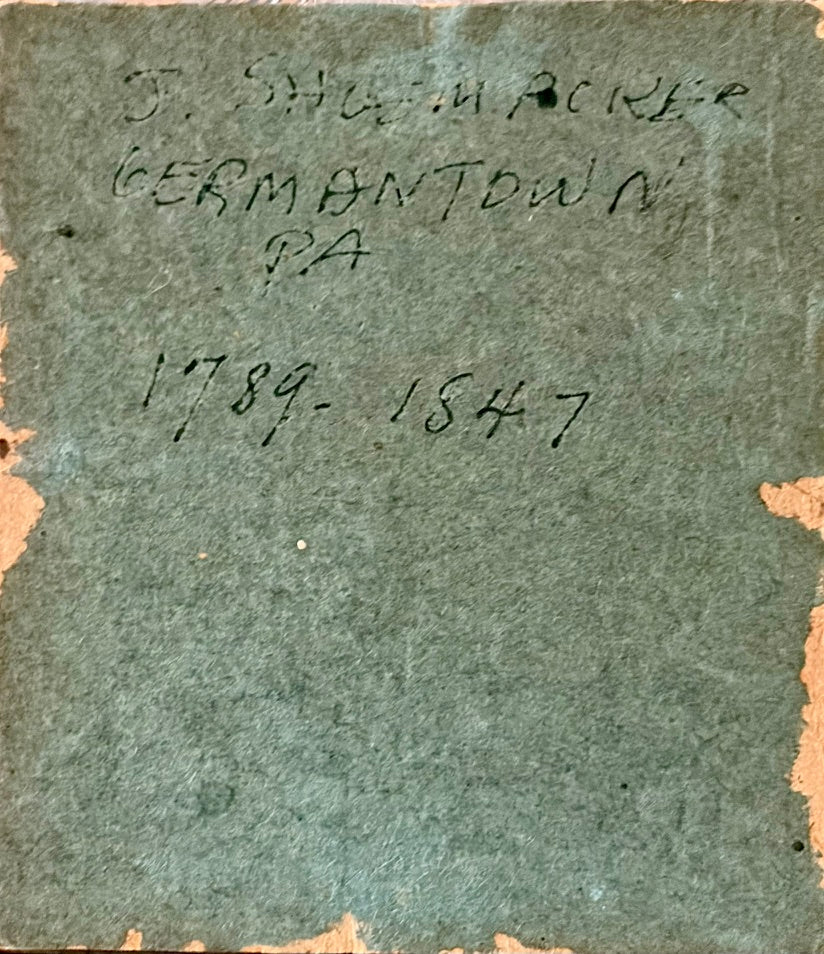 J. SHUEMACKER
GERMANTOWN
PA
1789-1847